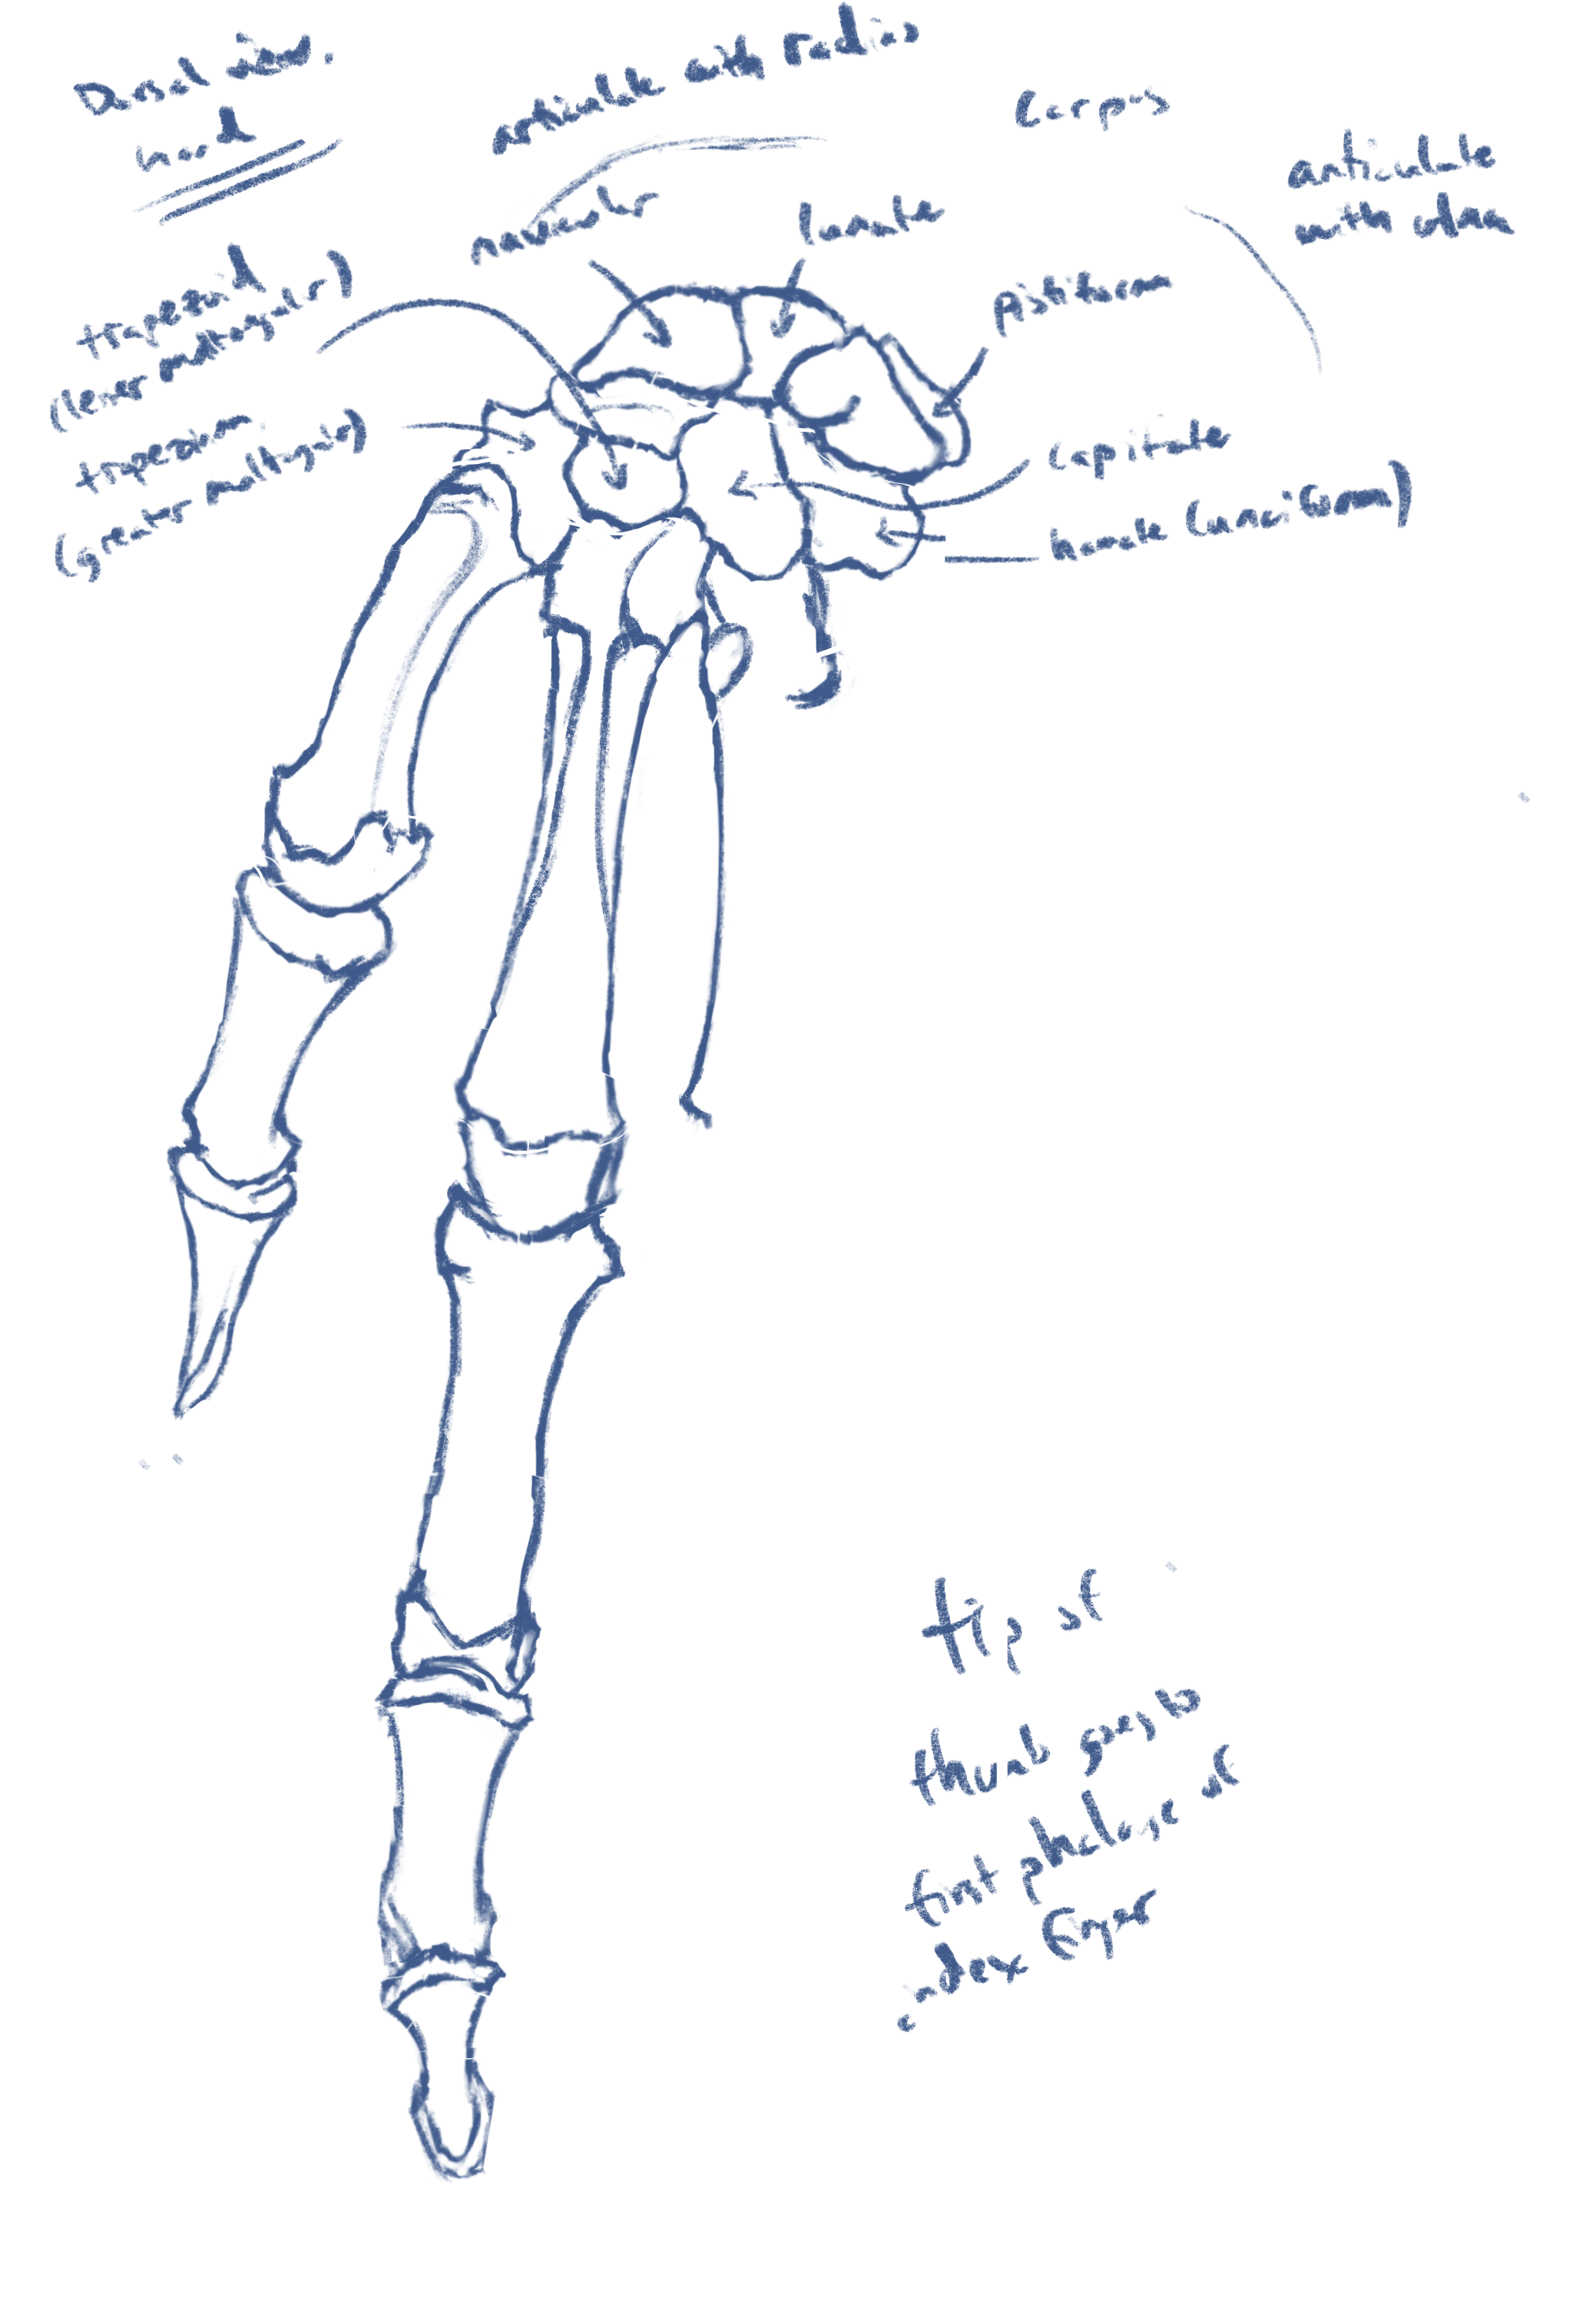 Dorsal view.
hand
articulate with radius
Carpus
articulate
with ulna
navicular
lunate
Pisiform
trapezoid
(lesser multangular)
trapezium
(greater multangular)
Capitate
hamate (unciform)
tip of
thumb goes to
first phalange of
index finger